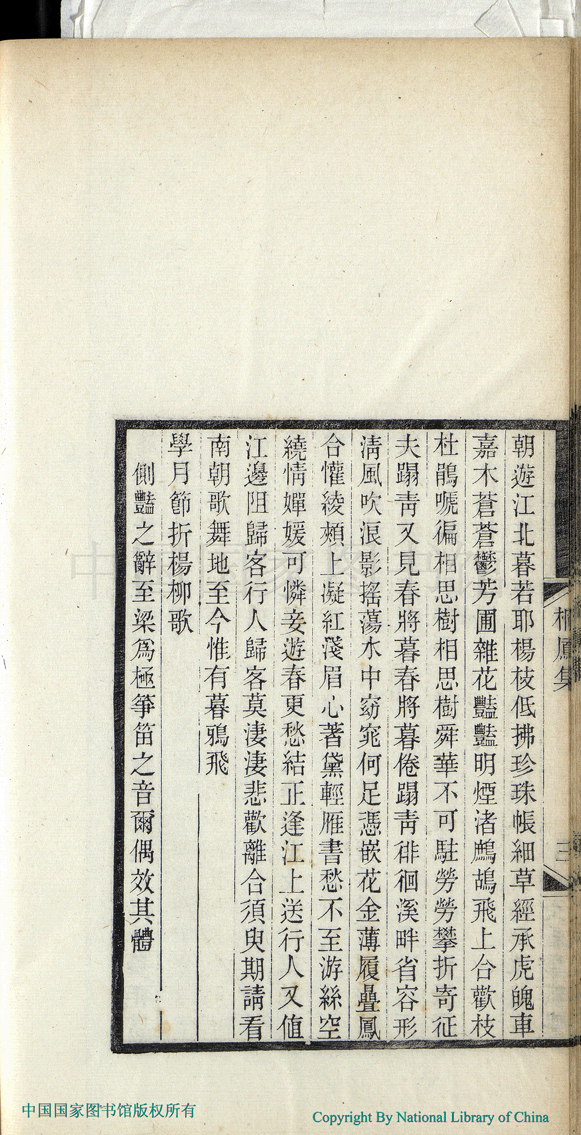 朝遊江北暮若耶楊枝低拂珍珠帳細草經承虎魄車
嘉木蒼蒼鬱芳圃雜花豔豔明煙渚鷓鴣飛上合歡枝
杜鵑嗁徧相思樹相思樹舜華不可駐勞勞攀折寄征
夫蹋靑又見春將暮春將暮倦蹋靑徘徊溪畔省容形
淸風吹浪影搖蕩水中窈窕何足憑嵌花金薄履疊鳳
合懽綾頰上凝紅淺眉心著黛輕雁書愁不至游絲空
繞情嬋媛可憐妾遊春更愁結正逢江上送行人又値
江邊阻歸客行人歸客莫淒淒悲歡離合須臾期請看
南朝歌舞地至今惟有暮鴉飛
學月節折楊柳歌
側豔之辭至梁爲極箏笛之音爾偶效其體
集
三
中国国家图书馆版权所有
Copyright By National Library of China